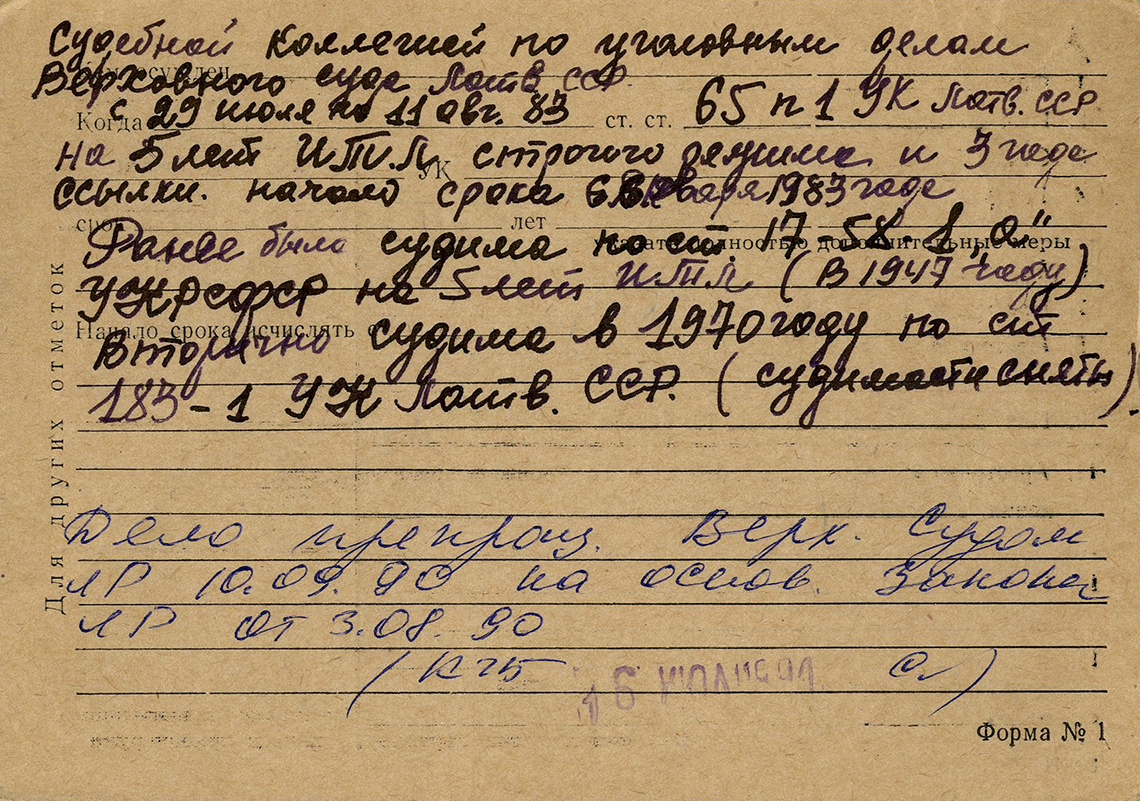 Судебной Коллегией по уголовным делам
Верховного суда Латв. ССР
Когда с 29 июля по 11 авг. 83 ст. ст. 65 п 1 УК Латв. ССР
на 5 лет ИТЛ УК строгого режима и 3 года
ссылки. начало срока 6 января 1983 года
срок лет
Ранее была судима по ст. 17-58-1 „а"
указать полностью дополнительные меры
УК РСФСР на 5 лет ИТЛ (В 1947 году)
Начало срока исчислять с
Вторично судима в 1970 году по ст
183-1 УК Латв. ССР. (судимости сняты).
Для других отметок
Дело прекращ. Верх. Судом
ЛР 10.09.90 на основ. Закона
ЛР от 3.08.90
(КГБ )
16 ИЮЛ 1991
Форма № 1